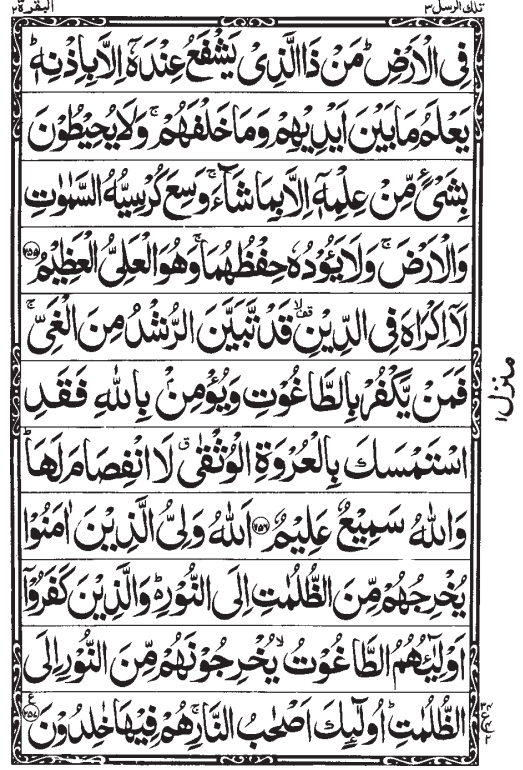 تلك الرسل ٣ البقرة ٢
فِی الۡاَرۡضِ ؕ مَنۡ ذَا الَّذِیۡ یَشۡفَعُ عِنۡدَہٗۤ اِلَّا بِاِذۡنِہٖ ؕ
یَعۡلَمُ مَا بَیۡنَ اَیۡدِیۡہِمۡ وَ مَا خَلۡفَہُمۡ ۚ وَ لَا یُحِیۡطُوۡنَ
بِشَیۡءٍ مِّنۡ عِلۡمِہٖۤ اِلَّا بِمَا شَآءَ ۚ وَسِعَ کُرۡسِیُّہُ السَّمٰوٰتِ
وَ الۡاَرۡضَ ۚ وَ لَا یَـُٔوۡدُہٗ حِفۡظُہُمَا ۚ وَ ہُوَ الۡعَلِیُّ الۡعَظِیۡمُ ﴿۲۵۵﴾
لَاۤ اِکۡرَاہَ فِی الدِّیۡنِ ۟ۙ قَدۡ تَّبَیَّنَ الرُّشۡدُ مِنَ الۡغَیِّ ۚ
فَمَنۡ یَّکۡفُرۡ بِالطَّاغُوۡتِ وَ یُؤۡمِنۡۢ بِاللّٰہِ فَقَدِ
اسۡتَمۡسَکَ بِالۡعُرۡوَۃِ الۡوُثۡقٰی ٭ لَا انۡفِصَامَ لَہَا ؕ
وَ اللّٰہُ سَمِیۡعٌ عَلِیۡمٌ ﴿۲۵۶﴾ اَللّٰہُ وَلِیُّ الَّذِیۡنَ اٰمَنُوۡا
یُخۡرِجُہُمۡ مِّنَ الظُّلُمٰتِ اِلَی النُّوۡرِ ۬ؕ وَ الَّذِیۡنَ کَفَرُوۡۤا
اَوۡلِیٰٓـُٔہُمُ الطَّاغُوۡتُ ۙ یُخۡرِجُوۡنَہُمۡ مِّنَ النُّوۡرِ اِلَی
الظُّلُمٰتِ ؕ اُولٰٓئِکَ اَصۡحٰبُ النَّارِ ۚ ہُمۡ فِیۡہَا خٰلِدُوۡنَ ﴿۲۵۷﴾
منزل ١